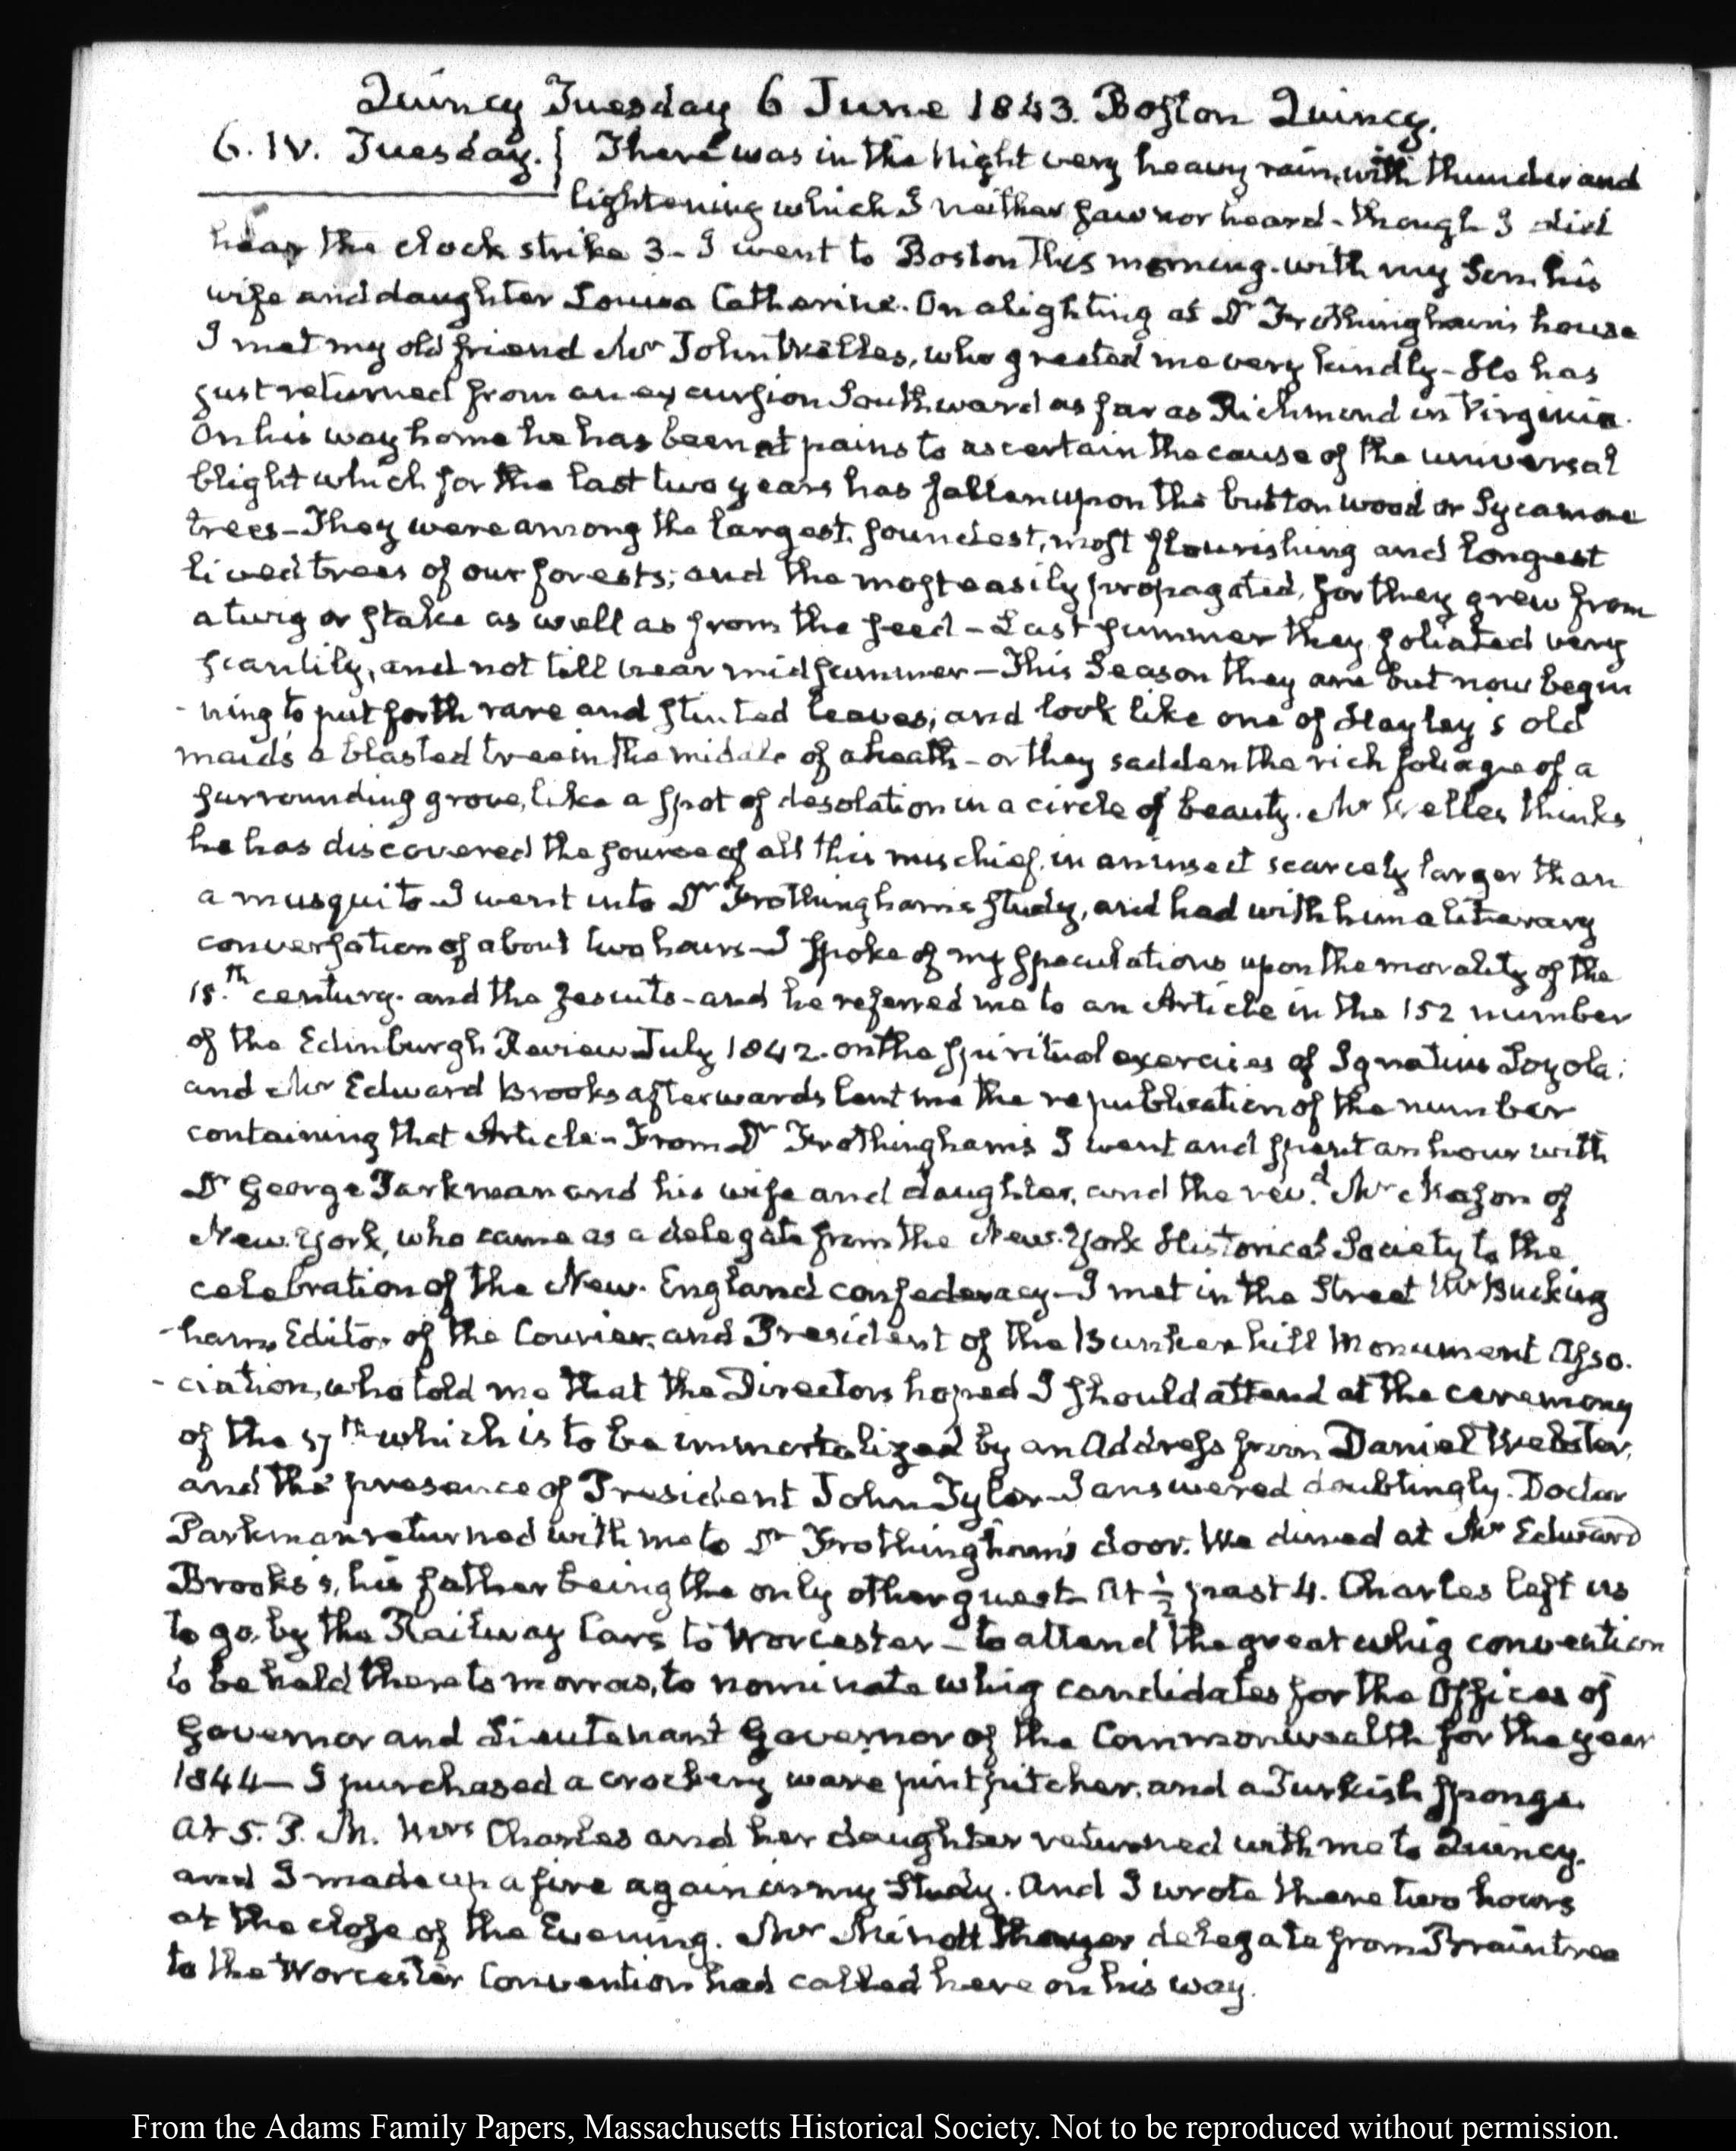 Quincy Tuesday 6 June 1843. Boston Quincy.
6. IV. Tuesday. } There was in the Night very heavy rain, with thunder and
lightening which I neither saw nor heard - though I did
hear the clock strike 3 - I went to Boston this morning with my Son his
wife and daughter Louisa Catherine. On alighting at Dr Frothingham's house
I met my old friend Mr John Welles, who greeted me very kindly - He has
just returned from an excursion Southward as far as Richmond in Virginia.
On his way home he has been at pains to ascertain the cause of the universal
blight which for the last two years has fallen upon the button wood or Sycamore
trees - They were among the largest, soundest, most flourishing and longest
lived trees of our forests; and the most easily propagated, for they grew from
a twig or stake as well as from the seed - Last summer they foliated very
scantily, and not till near midsummer - This Season they are but now begin
-ning to put forth rare and stinted leaves; and look like one of Hayley's old
maids a blasted tree in the middle of a heath - or they sadden the rich foliage of a
surrounding grove, like a spot of desolation in a circle of beauty. Mr Welles thinks
he has discovered the source of all this mischief, in an insect scarcely larger than
a musquito - I went into Dr Frothingham's study, and had with him a literary
conversation of about two hours - I spoke of my speculations upon the morality of the
15.th century and the Jesuits - and he referred me to an Article in the 152 number
of the Edinburgh Review July 1842. on the spiritual exercises of Ignatius Loyola;
and Mr Edward Brooks afterwards lent me the republication of the number
containing that Article - From Dr Frothingham's I went and spent an hour with
Dr George Parkman and his wife and daughter, and the rev.d Mr Mason of
New-York, who came as a delegate from the New-York Historical Society to the
celebration of the New-England confederacy - I met in the Street Mr Bucking
-ham, Editor of the Courier, and President of the Bunker hill Monument Asso.
-ciation, who told me that the Directors hoped I should attend at the ceremony
of the 17th which is to be immortalized by an Address from Daniel Webster,
and the presence of President John Tyler - I answered doubtingly. Doctor
Parkman returned with me to Dr Frothingham's door. We dined at Mr Edward
Brooks's, his father being the only other guest - At ½ past 4. Charles left us
to go, by the Railway Cars to Worcester - to attend the great whig convention
to be held there to morrow, to nominate whig candidates for the Offices of
Governor and Lieutenant Governor of the Commonwealth for the year
1844 - I purchased a crockery ware pint pitcher, and a Turkish sponge.
At 5. P. M. Mrs Charles and her daughter returned with me to Quincy.
and I made up a fire again in my Study. And I wrote there two hours
at the close of the Evening. Mr Minott Thayer delegate from Braintree
to the Worcester Convention had called here on his way.
From the Adams Family Papers, Massachusetts Historical Society. Not to be reproduced without permission.